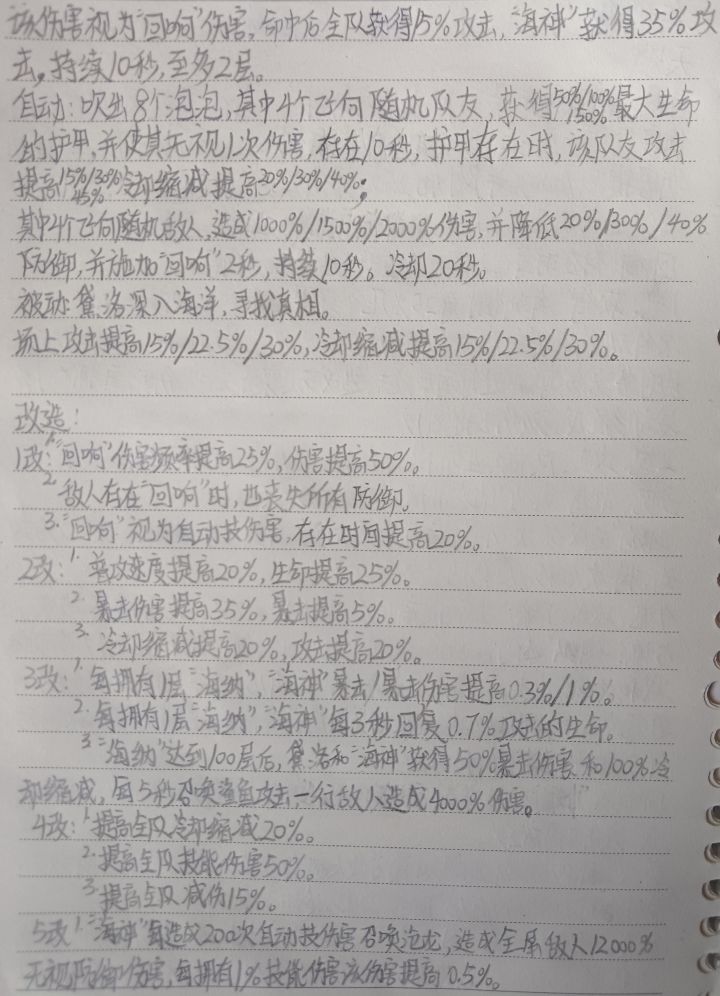 该伤害视为"回响"伤害,命中后全队获得15%攻击,"海神"获得35%攻
击,持续10秒,至多2层。
自动:吹出8个泡泡,其中4个飞向随机队友,获得50%/100%/150%最大生命
的护甲,并使其无视1次伤害,存在10秒,护甲存在时,该队友攻击
提高15%/30%/45%冷却缩减提高20%/30%/40%;
其中4个飞向随机敌人,造成1000%/1500%/2000%伤害,并降低20%/30%/40%
防御,并施加"回响"2秒,持续10秒。冷却20秒。
被动:黛洛深入海洋,寻找真相。
场上攻击提高15%/22.5%/30%,冷却缩减提高15%/22.5%/30%。
改造:
1改:1."回响"伤害频率提高25%,伤害提高50%。
2.敌人存在"回响"时,也丧失所有防御。
3."回响"视为自动技伤害,存在时间提高20%。
2改:1.普攻速度提高20%,生命提高25%。
2.暴击伤害提高35%,暴击提高5%。
3.冷却缩减提高20%,攻击提高20%。
3改:1.每拥有1层"海纳","海神"暴击/暴击伤害提高0.3%/1%。
2.每拥有1层"海纳","海神"每3秒回复0.7%攻击的生命。
3."海纳"达到100层后,黛洛和"海神"获得50%暴击伤害和100%冷
却缩减,每5秒召唤鲨鱼攻击一行敌人造成4000%伤害。
4改:1.提高全队冷却缩减20%。
2.提高全队技能伤害50%。
3.提高全队减伤15%。
5改1."海神"每造成200次自动技伤害召唤沧龙,造成全屏敌人12000%
无视防御伤害,每拥有1%技能伤害该伤害提高0.5%。